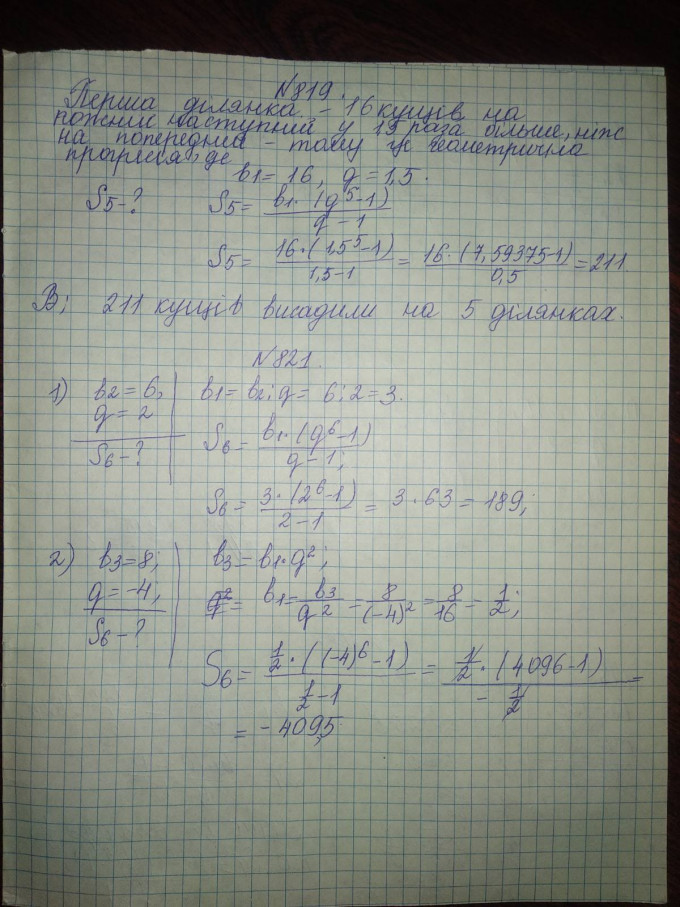 №819.
Перша ділянка - 16 кущів на
кожній наступній у 1,5 раза більше, ніж
на попередній - тому це геометрична
прогресія, де
b1 = 16, q = 1,5.
S5 - ? S5 = b1·(q^5-1) / q-1
S5 = 16·(1,5^5-1) / 1,5-1 = 16·(7,59375-1) / 0,5 = 211
В: 211 кущів висадили на 5 ділянках.
№821.
1) b2 = 6, b1 = b2 : q = 6 : 2 = 3.
q = 2
S6 - ? S6 = b1·(q^6-1) / q-1;
S6 = 3·(2^6-1) / 2-1 = 3·63 = 189;
2) b3 = 8; b3 = b1·q^2;
q = -4; b1 = b3 / q^2 = 8 / (-4)^2 = 8/16 = 1/2;
S6 - ?
S6 = 1/2·((-4)^6-1) / 1/2-1 = 1/2·(4096-1) / -1/2 =
= -4095